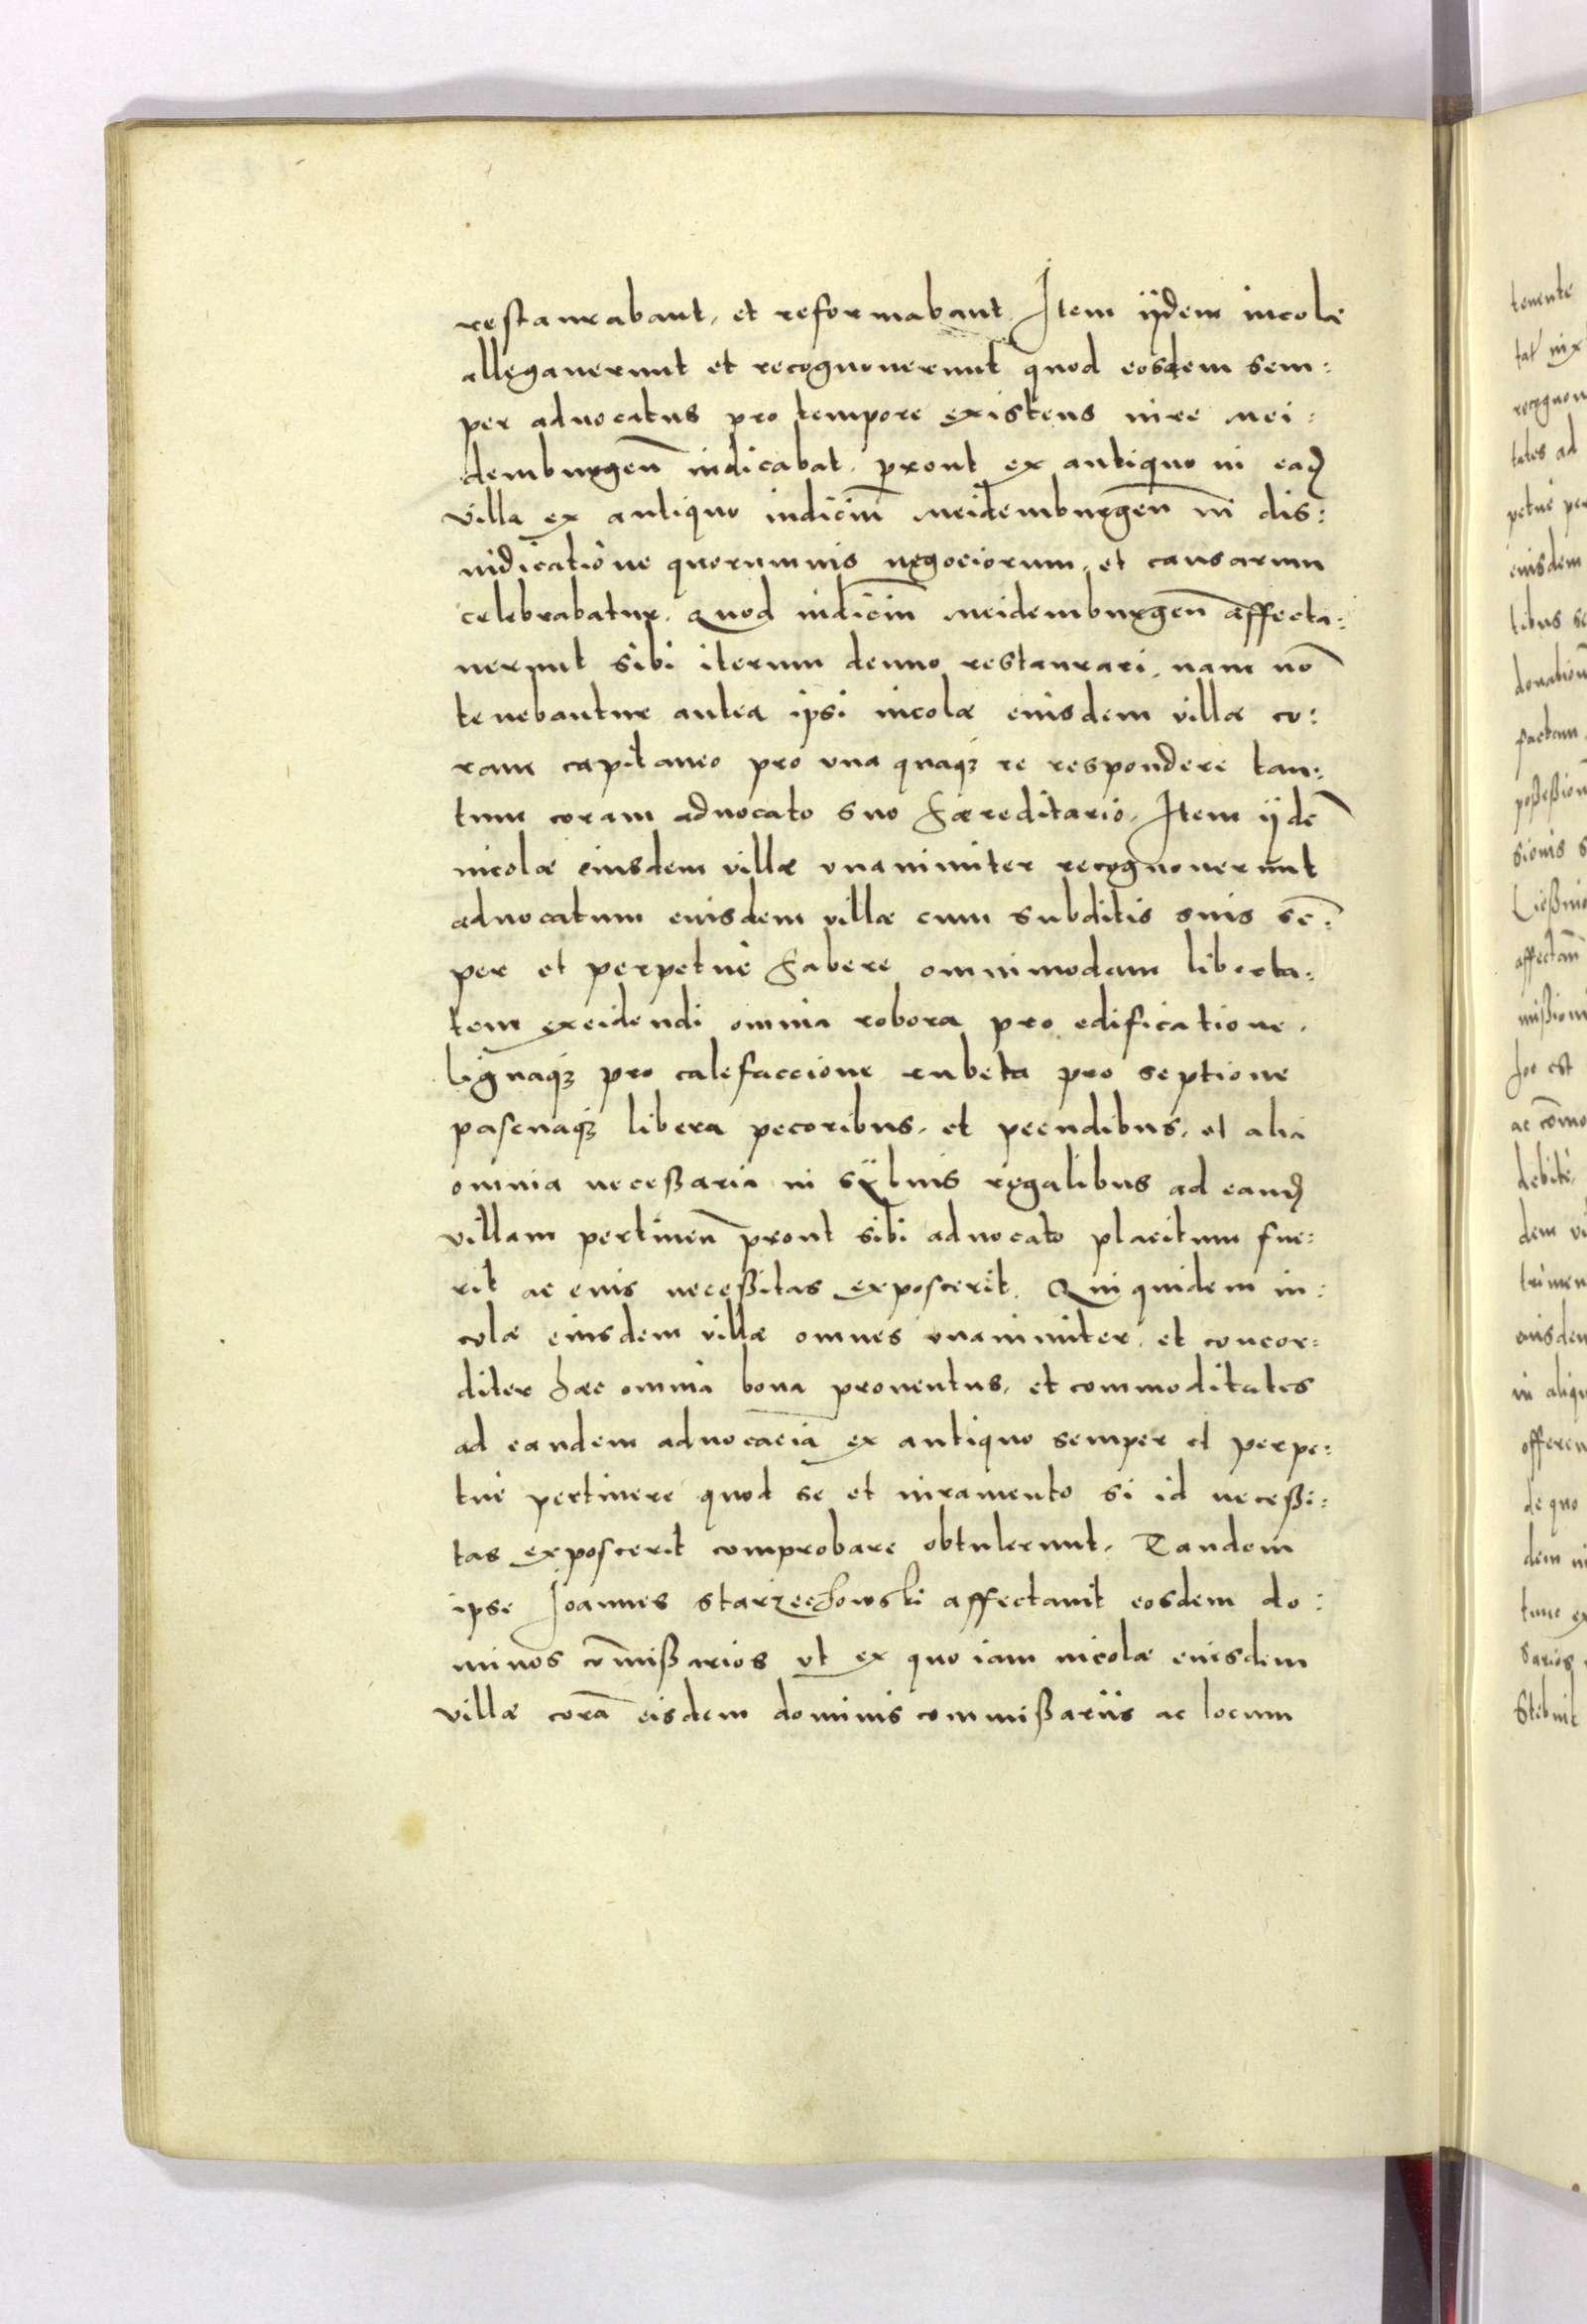 restaurabant, et reformabant. Item ijdem incolæ
allegauerunt et recognouerunt quod eosdem sem:
per aduocatus pro tempore existens iure mei:
demburgen̄ iudicabat, prout ex antiquo in ead
villa ex antiquo iudiciū meidemburgen̄ in dis:
iudicatione quorumuis negociorum, et causarum
celebrabatur. Quod iudiciū meidemburgen̄ affecta:
uerunt sibi iterum denuo restaurari, nam nō
tenebantur antea ipsi incolæ eiusdem villæ co:
ram capitaneo pro una quaqꝫ re respondere tan:
tum coram aduocato suo hæreditario. Item ijdē
incolæ eiusdem villæ vnanimiter recognouerunt
aduocatum eiusdem villæ cum subditis suis sē:
per et perpetuè habere omnimodam liberta:
tem excidendi omnia robora pro edificatione,
lignaqꝫ pro calefaccione rubeta pro septione
pascuaqꝫ libera pecoribus, et pecudibus, et alia
omnia necessaria in sÿluis regalibus ad eand
villam pertinen̄ prout sibi aduocato placitum fue:
rit ac eius neceßitas exposcerit. Qui quidem in:
colæ eiusdem villæ omnes vnanimiter, et concor:
diter hæc omnia bona prouentus, et commoditates
ad eandem aduocaciā ex antiquo semper et perpe:
tuè pertinere quod se et iuramento si id neceßi:
tas exposcerit comprobare obtulerunt. Tandem
ipse Joannes starzechowski affectauit eosdem do:
minos com̄ißarios vt ex quo iam incolæ eiusdem
villæ corā eisdem dominis commißariis ac locum
tenente